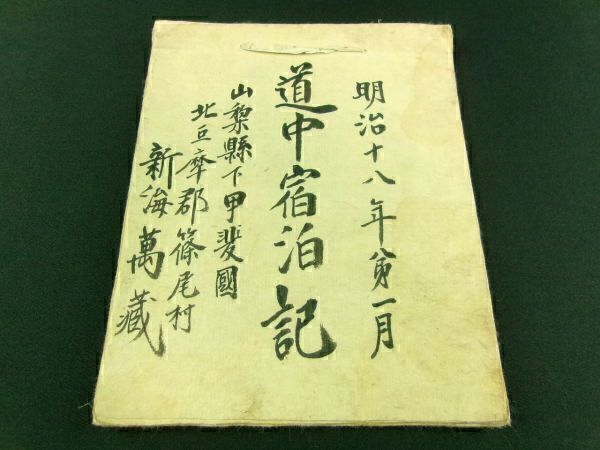 明治十八年第一月
道中宿泊記
山梨縣下甲斐國
北巨摩郡篠尾村
新海萬藏